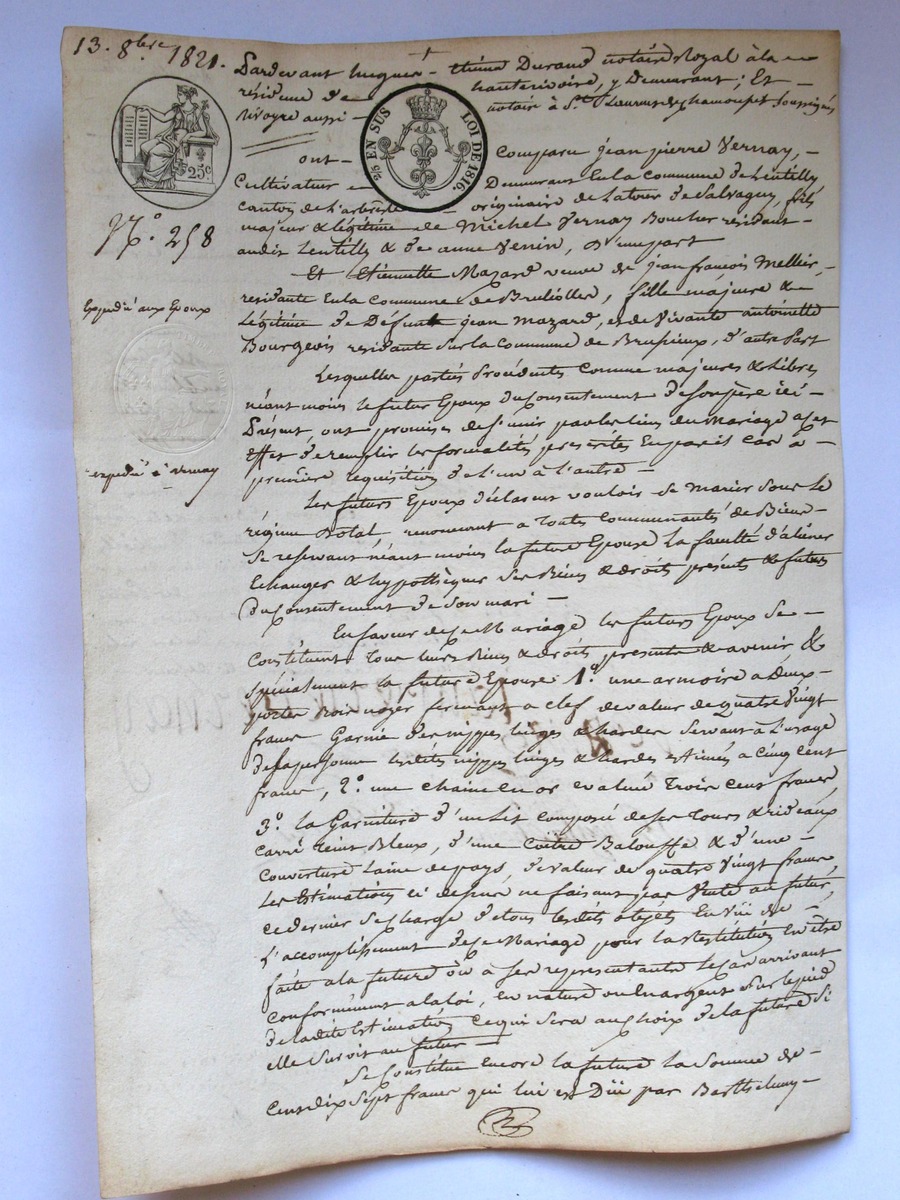 13. 8bre 1821.
Pardevant hugues - étiènne Durand notaire Royal à la
résidence de hauterivoire, y Demeurant; Et
Rivoyre aussi - notaire à St. Laurent de chamousset Soussignés
2/10 EN SUS LOI DE 1816.
25c
ont - Comparu jean pierre Vernay, -
Cultivateur - Demeurant En la commune de Lentilly
canton de L'arbresle - originaire de Latour de Salvagny, fils
N.° 258
majeur & légitime de Michel Vernay Boucher résidant
audit Lentilly & de anne Venin, D'une part
Et Etiennette Mazard veuve de jean françois Mellier, -
Expédié aux Epoux
résidante En la Commune de Brullioles, fille majeure &
Légitime de Défunt jean Mazard, et de Vivante antoinette
Bourgeois résidante Sur la Commune de Brupieux, d'autre Part
Lesquelles parties Procédants comme majeures & Libres
néant moins le futur Epoux du Consentement de son père ici -
Présent, ont promises de S'unir par les liens du Mariage a cet
Effet de remplir les formalités prescrites En pareil cas à -
expédié à vernay
première requisition de L'un à L'autre -
Les futurs Epoux déclarent vouloir Se Marier Sous Le
régime Dotal renoncent a Toutes Communautés de Biens -
Se réservant néant moins la future Epouse La faculté d'aliéner
Echanger & hypothèquer Ses Biens & droits présents & futurs
du Consentement de Son mari -
En faveur de ce Mariage les futurs Epoux Se -
Constituent Tous leurs Biens & droits présents & avenir &
Spécialement la future Epouse 1.° une armoire a Deux
portes Bois noyer fermant a clef de valeur de quatre Vingt
francs Garnie des nippes, linges & hardes Servant à L'usage
de sa personne lesdites nippes linges & hardes estimés a cinq cent
francs, 2.° une chaine en or evalué Trois Cent francs,
3.° la Garniture d'un Lit composée de ses Tours & rideaux
carré teint Bleux, d'une Coètre Balouffe & d'une -
Couverture Laine de pays, de valeur de quatre Vingt francs
Les Estimations ci dessus ne faisant pas Vente au futur,
ce dernier Se charge de tous lesdits objets En Vüe de -
L'accomplissement de ce Mariage pour la Restitution En être
faite a la future ou à Ses représentants le Cas arrivant
conformément a la loi, en nature ou En argent Sur le pied
de la dite Estimation, ce qui Sera au choix de la future Si
elle Survit au futur -
Se Constitue Encore la future la Somme de -
Cent dix Sept francs qui lui est Düe par Barthelemy -